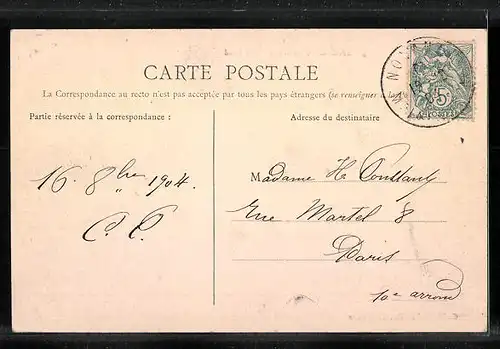 CARTE POSTALE
La Correspondance au recto n'est pas acceptée par tous les pays étrangers (se renseigner
Partie réservée à la correspondance :
Adresse du destinataire
16. 8bre 1904.
C. C.
Madame H. Constant
Rue Martel 8
Paris
10e arrond
5